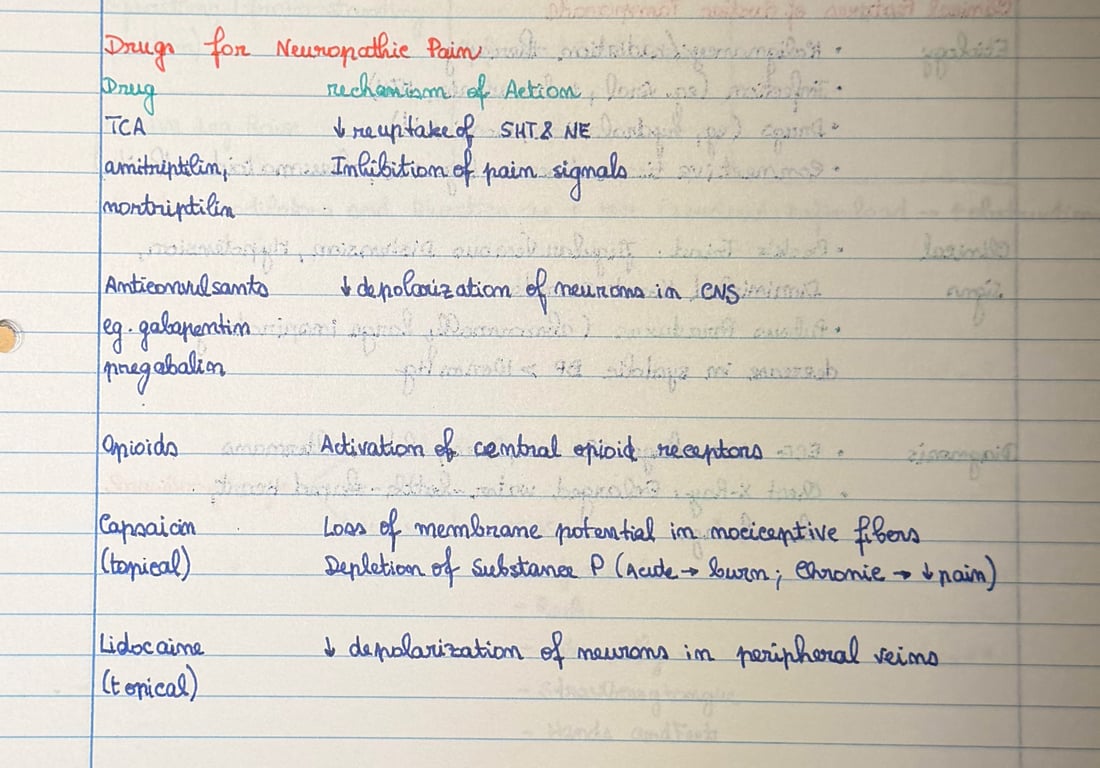 Drugs for Neuropathic Pain
Drug mechanism of Action
TCA ↓ reuptake of 5HT & NE
amitriptilin, Inhibition of pain signals
nortriptilin
Anticonvulsants ↓ depolarization of neurons in CNS
eg. gabapentin
pregabalin
Opioids Activation of central opioid receptors
Capsaicin Loss of membrane potential in nociceptive fibers
(topical) Depletion of Substance P (Acute → burn; Chronic → ↓ pain)
Lidocaine ↓ depolarization of neurons in peripheral veins
(topical)